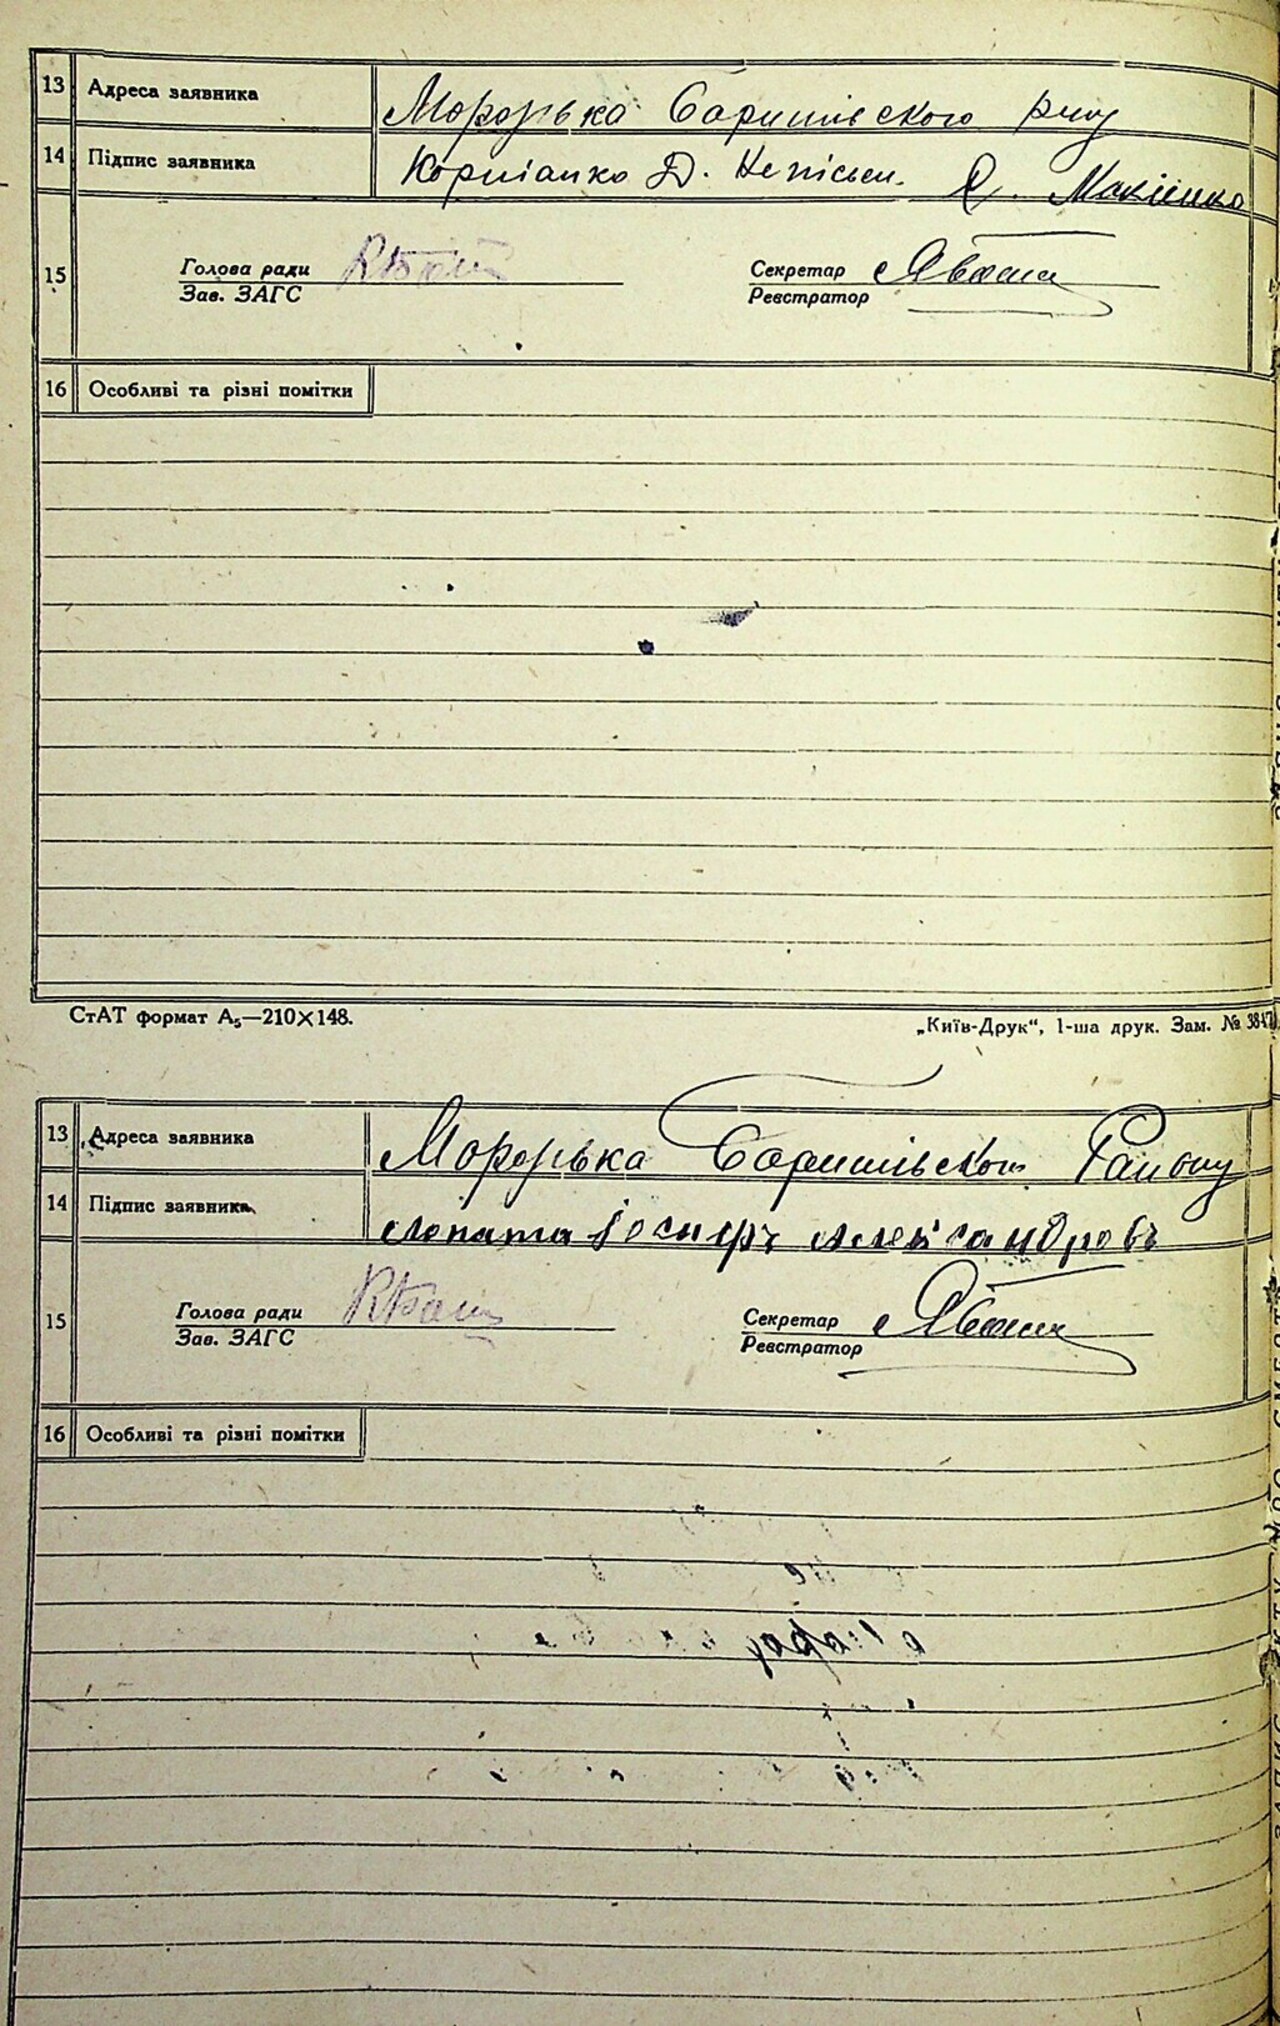 13 Адреса заявника Морозівка Баришівського р-ну
14 Підпис заявника Корніапко Д. Непісьм. Макієнко
15 Голова ради Секретар
Зав. ЗАГС Реєстратор
16 Особливі та різні помітки
СтАТ формат А₅—210×148. „Київ-Друк“, 1-ша друк. Зам. № 3847
13 Адреса заявника Морозівка Баришівського Району
14 Підпис заявника Лопата Іосифъ Александровъ
15 Голова ради Секретар
Зав. ЗАГС Реєстратор
16 Особливі та різні помітки